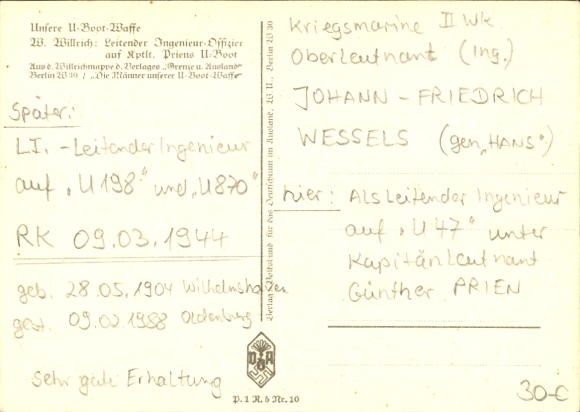 Unsere U-Boot-Waffe
W. Willrich: Leitender Ingenieur-Offizier
auf Kptlt. Priens U-Boot
Aus d. Willrichmappe d. Verlages „Grenze u. Ausland“
Berlin W 30 / „Die Männer unserer U-Boot-Waffe“
Später:
L.I. - Leitender Ingenieur
auf „U 198“ und „U 870“
RK 09.03.1944
geb. 28.05.1904 Wilhelmshaven
gest. 09.02.1988 Oldenburg
Sehr gute Erhaltung
Verlag f. Volkstum und für das Deutschtum im Ausland, W. U., Berlin W 30
VDA
P. 1 R. 6 Nr. 10
Kriegsmarine II Wk.
Oberleutnant (Ing.)
JOHANN - FRIEDRICH
WESSELS (gen. „HANS“)
hier: Als Leitender Ingenieur
auf „U 47“ unter
Kapitänleutnant
Günther PRIEN
30-€